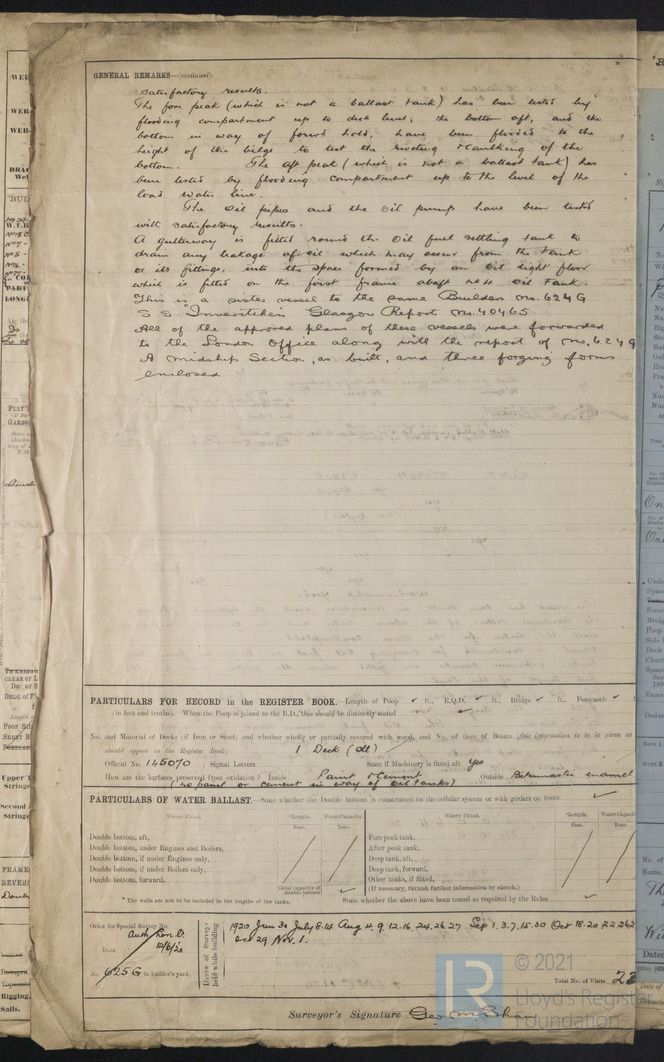 GENERAL REMARKS—(continued).
satisfactory results.
The fore peak (which is not a ballast tank) has been tested by
flooding compartment up to deck level; the bottom aft, and the
bottom in way of forwd hold, have been flooded to the
height of the bilge to test the riveting & caulking of the
bottom. The aft peak (which is not a ballast tank) has
been tested by flooding compartment up to the level of the
load water line.
The oil pipes and the oil pump have been tested
with satisfactory results.
A gutterway is fitted round the oil fuel settling tank to
drain any leakage of oil which may occur from the tank
or its fittings, into the space formed by an oil tight floor
which is fitted on the first frame abaft No 4 oil tank.
This is a sister vessel to the same Builders No. 624 G
S.S. "Inveritchen" Glasgow Report No. 40465.
All of the approved plans of these vessels were forwarded
to the London Office along with the report of No. 624 G
A midship Section, as built, and three forging forms
enclosed
PARTICULARS FOR RECORD in the REGISTER BOOK.—Length of Poop ft., R.Q.D. ft., Bridge ft., Forecastle
(in feet and tenths). When the Poop is joined to the B.D., this should be distinctly stated
No. and Material of Decks (if Iron or Steel) and whether wholly or partially covered with wood, and No. of tiers of Beams (this information is to be given as
should appear in the Register Book) 1 Deck (stl)
Official No. 145070 ; Signal Letters State if Machinery is fitted aft Yes
How are the surfaces preserved from oxidation? Inside Paint & Cement Outside Bitumastic enamel
(no paint or cement in way of oil tanks)
PARTICULARS OF WATER BALLAST.—State whether the Double bottom is constructed on the cellular system or with girders on floors
Where Fitted. *Length. Water Capacity. Where Fitted. *Length. Water Capacity
Feet. Tons. Feet. Tons.
Double bottom, aft, Fore peak tank,
Double bottom, under Engines and Boilers, After peak tank,
Double bottom, if under Engines only, Deep tank, aft,
Double bottom, if under Boilers only, Deep tank, forward,
Double bottom, forward, Other tanks, if fitted,
Total capacity of double bottom (If necessary, furnish further information by sketch.)
* The wells are not to be included in the lengths of the tanks. State whether the above have been tested as required by the Rules
Order for Special Survey No. Auth. Lon. Lr.
Date 12/6/20
No. 625 G in builder's yard.
Dates of Surveys held while building
1920 Jun 30 July 8.14 Aug 4. 9. 12.16, 24.26. 27 Sep 1. 3. 7. 15. 30 Oct 18. 20
Oct 29 Nov. 1.
Total No. of Visits 22
Surveyor's Signature
LR
© 2021
Lloyd's Register
Foundation